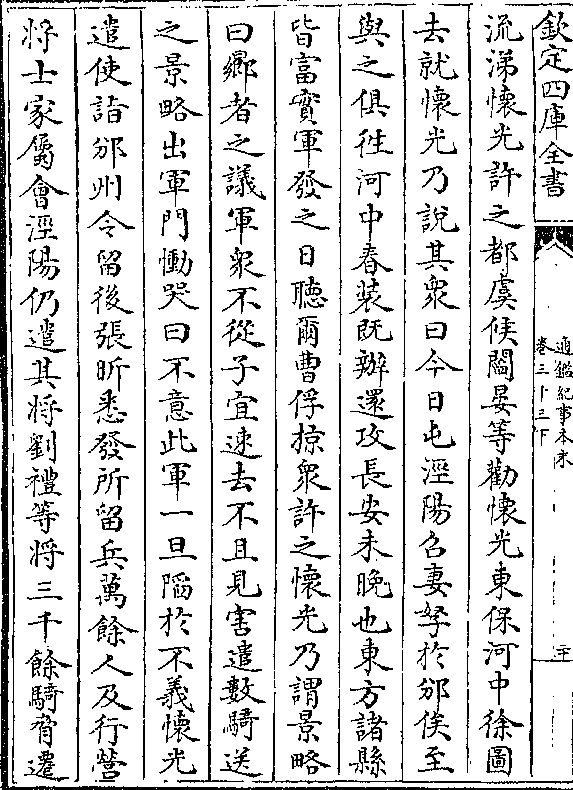 欽定四庫全書
通鑑紀事本末
卷三十三下
二十
流涕懷光許之都虞候閻晏等勸懷光東保河中徐圖
去就懷光乃說其衆曰今日屯涇陽召妻孥於邠俟至
與之俱往河中春裝既辦還攻長安未晚也東方諸縣
皆富實軍發之日聽爾曹俘掠衆許之懷光乃謂景略
曰鄉者之議軍衆不從子宜速去不且見害遣數騎送
之景略出軍門慟哭曰不意此軍一旦陷於不義懷光
遣使詣邠州令留後張昕悉發所留兵萬餘人及行營
將士家屬會涇陽仍遣其將劉禮等將三千餘騎脅遷